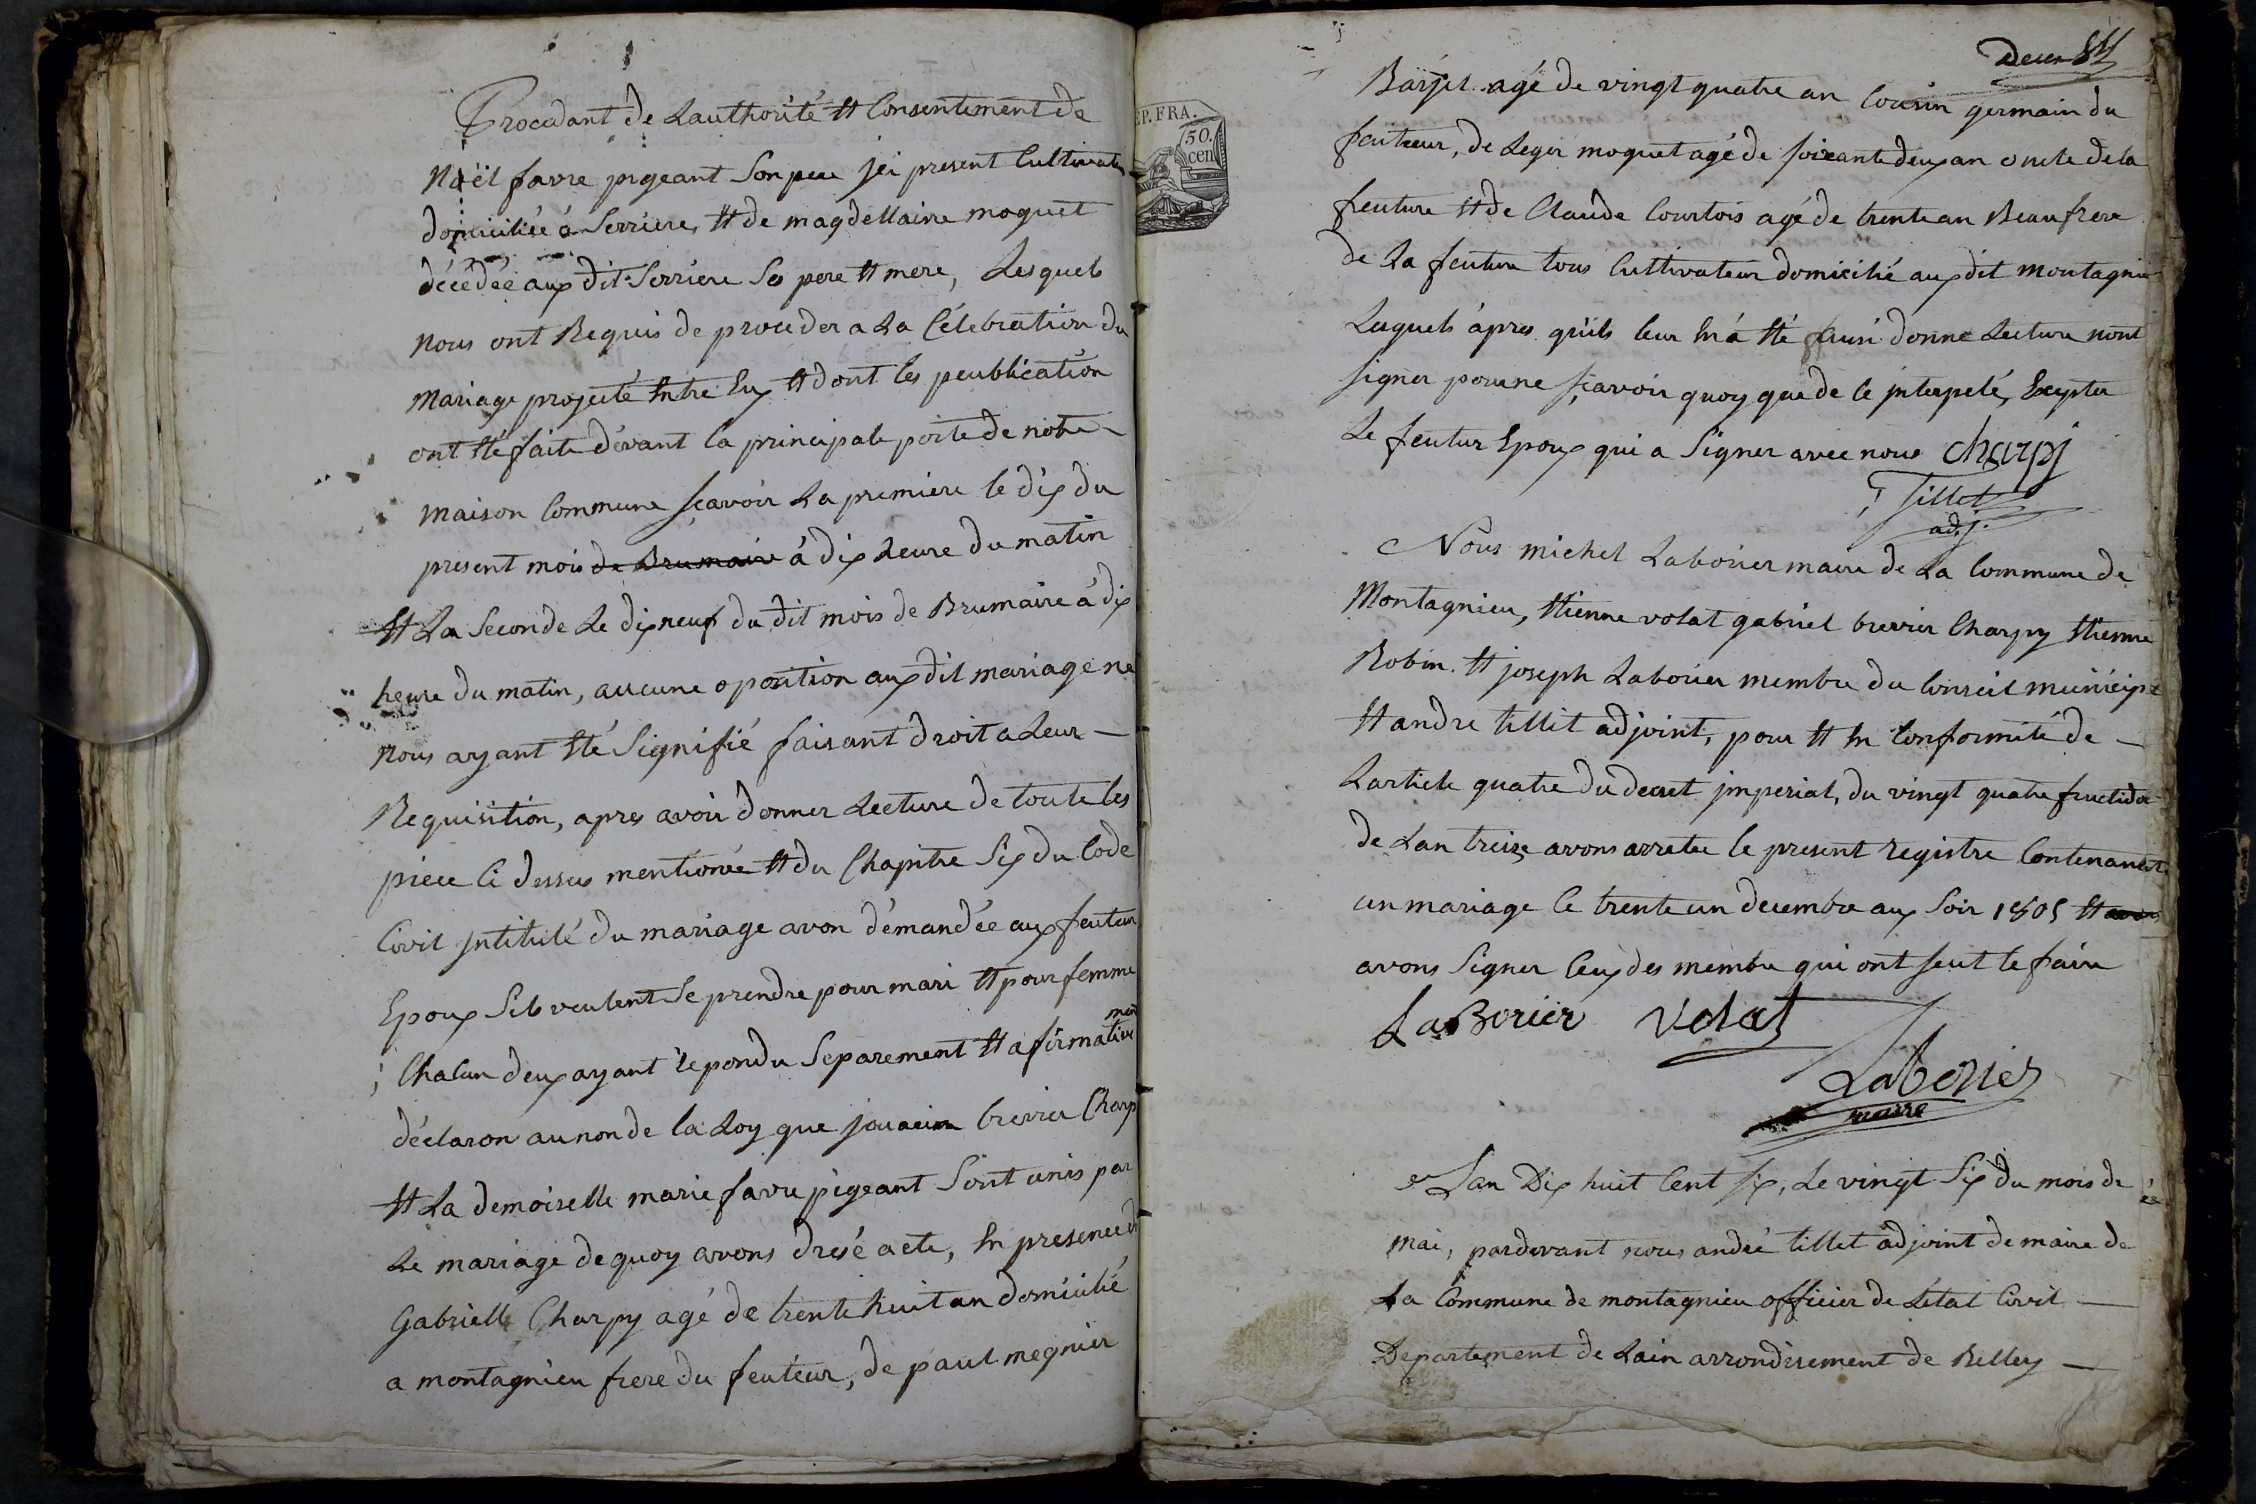 Procedant de Lauthorité et Consentement de
Noël favre pigeant Son pere jci present Cultivateu
domiciliée á Serriere, et de magdellaine moquet
décédée aux dit Serriere Se pere et mere, Lesquels
nous ont Requis de proceder a La Célebration du
mariage projecté Entre Eux et dont les peublication
ont Eté faite dévant la principale porte de notre
maison Commune sçavoir La premiere le dix du
present mois de Brumaire á dix heure du matin
et La Seconde Le dix neuf du dit mois de Brumaire á dix
heure du matin, aucune oposition aux dit mariage ne
nous ayant Eté Signifié faisant droit a Leur
Requisition, apres avoir donner Lecture de toute les
piece Ci dessus mentionée et du Chapitre Six du Code
Civil jntitulé du mariage avon démandée aux feuteur
Epoux Sils veulent Se prendre pour mari et pour femme
Chacun deux ayant repondu Séparement et afirmative
men
déclaron au non de la Loy que jouacim brevier Charp
et La demoiselle marie favre pigeant Sont unis par
Le mariage de quoy avons dresé acte, En presence d
Gabrielle Charpy agé de trente huit an domicilié
a montagnieu frere du feuteur, de paul megnier
Decem
EP. FRA.
50.
cen
Barjet agé de vingt quatre an Cousin germain du
feuteur, de Leger moquet agé de soixante deux an oncle de la
feuture et de Claude Courtois agé de trente an Beaufrere
de La feuture tous Cultivateur domicilié aux dit montagnieu
Lesquels ápres quils leur En á Eté donne Lecture nont
signer pour ne sçavoir quoy que de le jnterpelé, Excepter
Le feutur Epoux qui a Signer avec nous charpj
Tillet
adj.
Nous michel Laborier maire de La Commune de
Montagnieu, Etienne volat gabriel brevier Charpy Etienne
Robin et joseph Laborier membre du Conseil municip
et andre tillit adjoint, pour et En Conformité de
Larticle quatre du decret jmperial, du vingt quatre fructidor
de Lan treize avons arretee le present registre Contenant
un mariage le trente un decembre aux Soir 1805 et
avons Signer Ceux des membre qui ont seut le faire
LaBorier Volat
Laborier
maire
Lan Dix huit Cent six, Le vingt Six du mois de
mai, pardevant nous andré tillet adjoint de maire de
La Commune de montagnieu officier de Létat Civil
Departement de Lain arrondisement de Belley